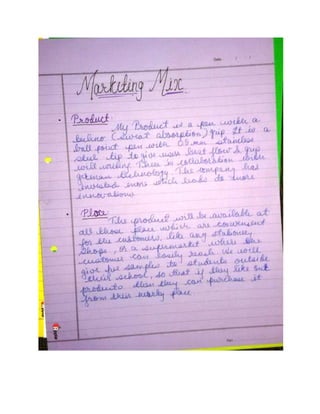 Date
Marketing Mix
• Product
My Product is a pen with a
(Sweat absorption) grip It is a
ball point pen with 0.9 mm stainless
steel tip to give user best flow & grip
will writing. There is collaboration with
german technology. The company has
invested more which leads to more
innovations
• Place
The product will be available at
all those place which are convenient
for the customer, like any stationery
shops, or a supermarket where the
customer can easily reach. We will
give free samples to students outside
their school, so that if they like our
products then they can purchase it
from their nearby place